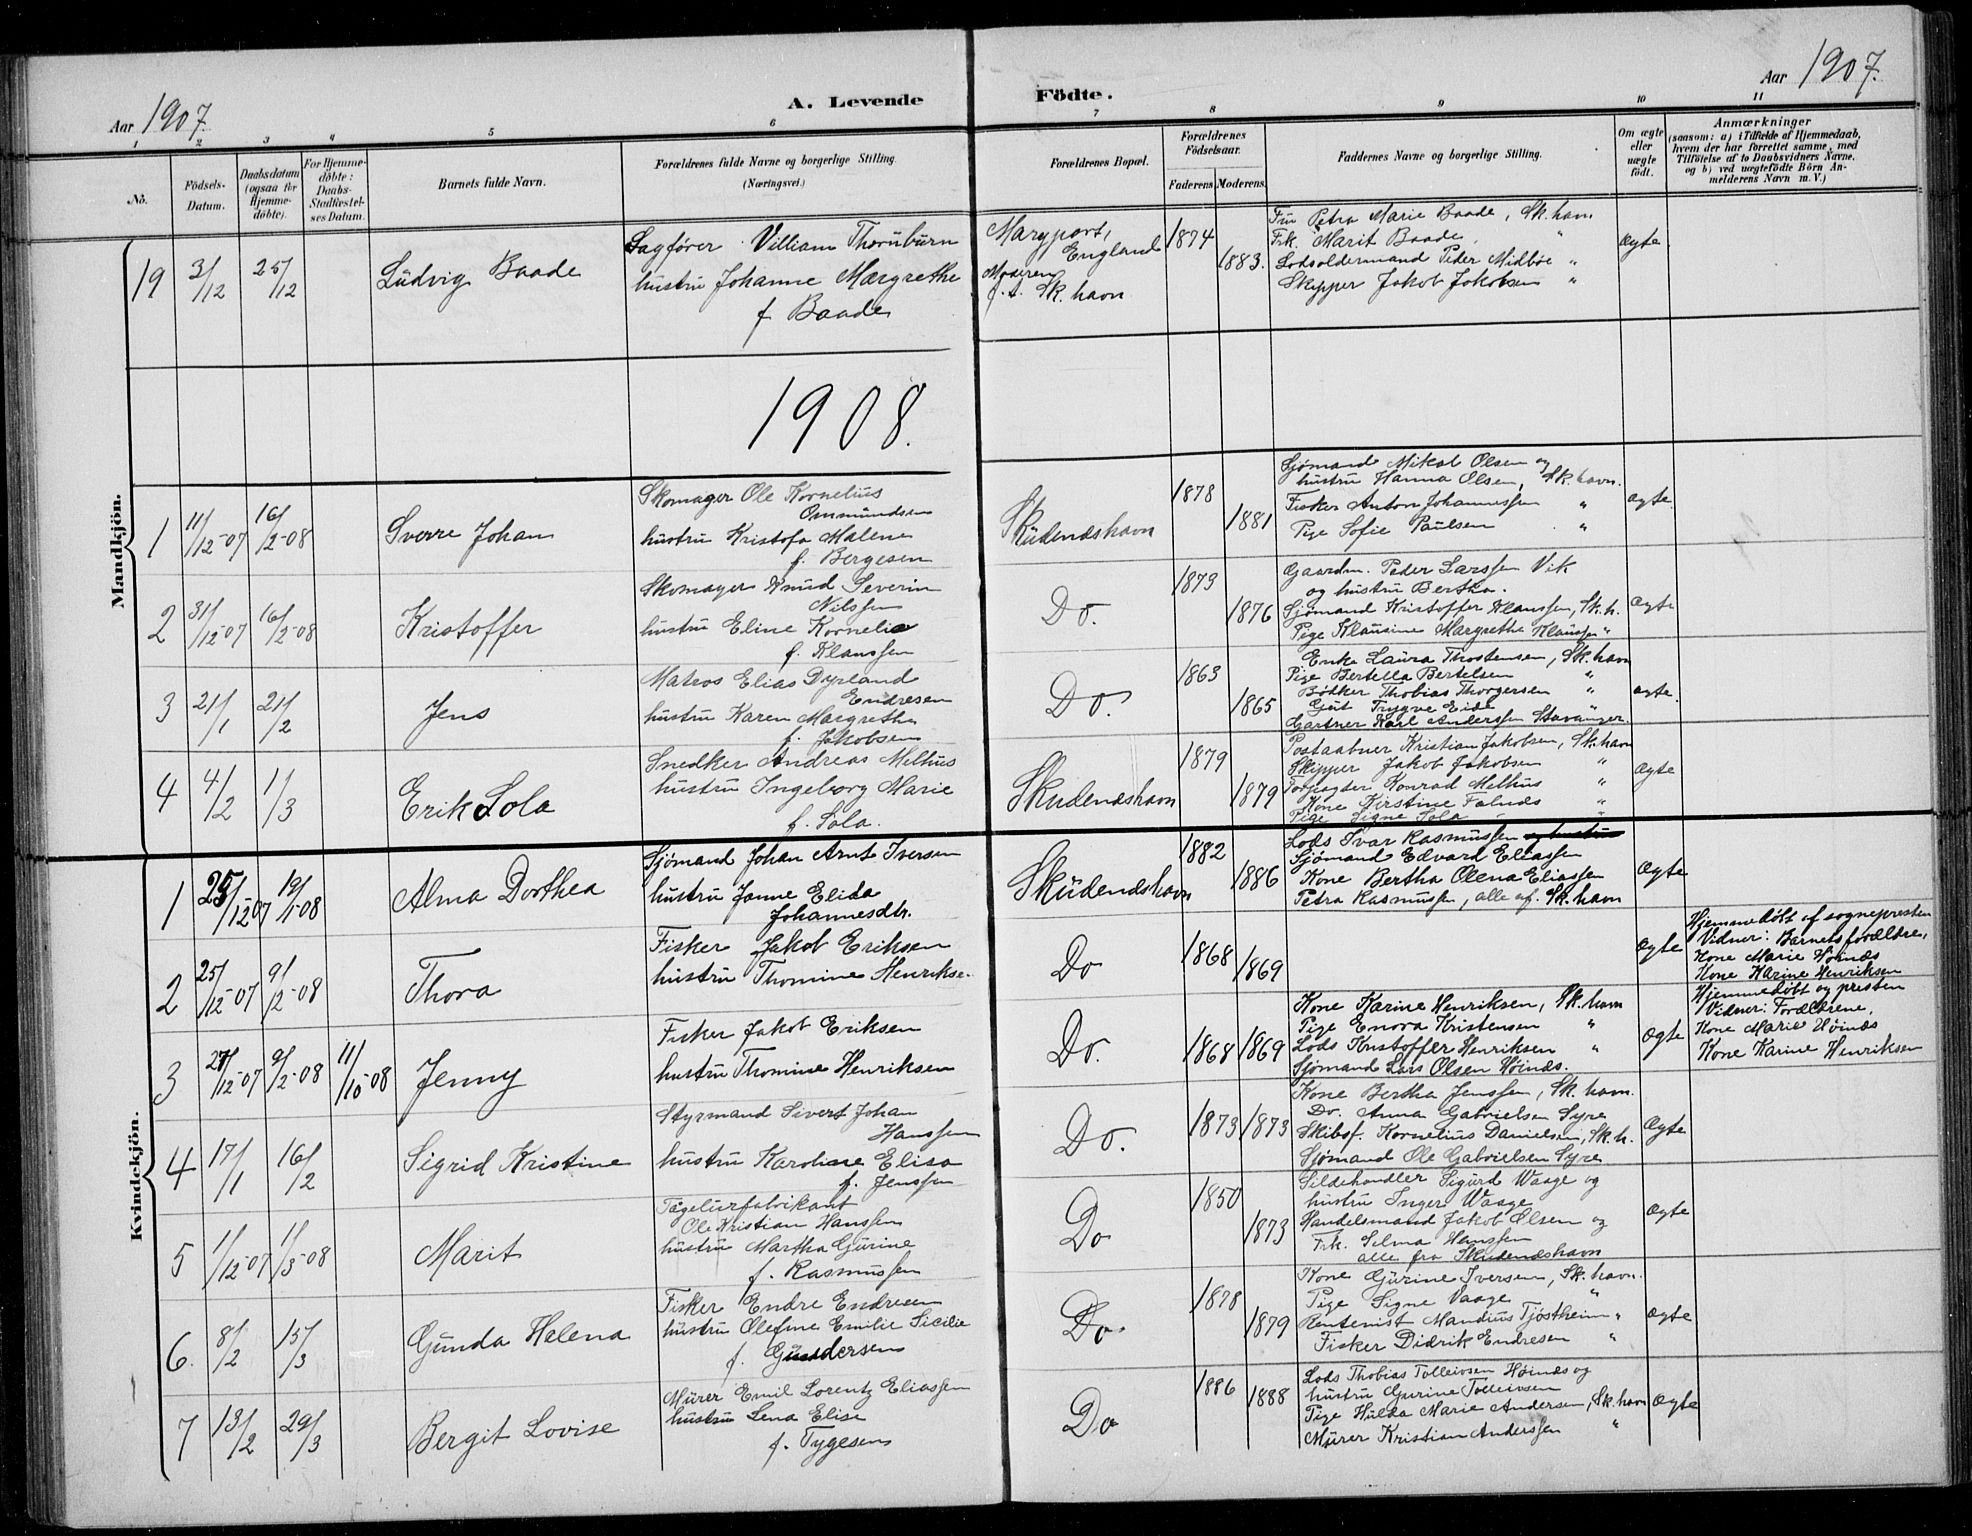 Aar 1907.
A. Levende
Födte.
Aar 1907.
1 2 3 4 5 6 7 8 9 10 11
No.
Födsels-
Datum.
Daabsdatum
(ogsaa för
Hjemme-
döbte).
For Hjemme-
döbte:
Daabs-
Stadfæstel-
ses Datum.
Barnets fulde Navn.
Forældrenes fulde Navne og borgerlige Stilling.
(Næringsvei.)
Forældrenes Bopæl.
Forældrenes
Födselsaar.
Faderens
Moderens.
Faddernes Navne og borgerlige Stilling.
Om ægte
eller
uægte
födt.
Anmærkninger
(saasom: a) i Tilfælde af Hjemmedaab,
hvem der har forrettet samme, med
Tilföielse af to Daabsvidners Navne,
og b) ved uægtefödte Börn An-
melderens Navn m. V.)
Mandkjön.
19 3/12 25/12 Ludvig Baade
Sagfører Villiam Thornburn
hustru Johanne Margrethe
f. Baade
Maryport,
England
Moderen
f. t. Sk.havn
1874 1883.
Fru Petra Marie Baade, Sk.havn
Frk. Marit Baade, "
Lodsoldermand Peder Midbøe "
Skipper Jakob Jakobsen "
Ægte
1908.
1 11/12-07 16/2-08 Sverre Johan
Skomager Ole Kornelius
Ommundsen
hustru Kristofa Malene
f. Bergesen
Skudendshavn
1878 1881
Sjømand Mikal Olsen og
hustru Hanna Olsen, Sk.havn.
Fisker Anton Johannessen "
Pige Sofie Paulsen "
Ægte
2 31/12-07 16/2-08 Kristoffer
Skomager Knud Severin
Nilssen
hustru Eline Kornelia
f. Klaussen
Do.
1873 1876
Gaardm. Peder Larssen Vik
og hustru Bertha.
Sjømand Kristoffer Klaussen, Sk.h.
Pige Klausine Margrethe Klaussen "
Ægte
3 21/1 21/2 Jens
Matros Elias Dyrland
Endresen
hustru Karen Margrethe
f. Jakobsen
Do.
1863 1865
Enke Laura Thostensen, Sk.havn
Pige Bertella Bertelsen "
Bødker Thobias Thorgersen "
Gut Trygve Eide
Gartner Karl Anderssen Stavanger.
Ægte
4 4/2 1/3 Erik Sola
Snedker Andreas Melhus
hustru Ingeborg Marie
f. Sola.
Skudendshavn
1879 1879
Postaabner Kristian Jakobsen, Sk.havn
Skipper Jakob Jakobsen "
Forpagter Konrad Melhus "
Kone Kirstine Falnæs "
Pige Signe Sola "
Ægte
Kvindekjön.
1 25/12-07 19/1-08 Alma Dorthea
Sjømand Johan Arnt Iversen
hustru Janne Elida
Johannesdtr.
Skudendshavn
1882 1886
Lods Ivar Rasmussen og hustru
Sjømand Edvard Eliassen
Kone Bertha Olena Eliassen
Petra Rasmussen, alle af Sk.havn
Ægte
2 25/12-07 9/2-08 Thora
Fisker Jakob Eriksen
hustru Thomine Henrikse.
Do
1868 1869
Ægte
Hjemmedøbt af sognepresten
Vidner: Barnets forældre,
Kone Marie Høinæs
Kone Karine Henriksen
3 27/12-07 9/2-08 11/10-08 Jenny
Fisker Jakob Eriksen
hustru Thomine Henriksen
Do.
1868 1869
Kone Karine Henriksen, Sk.havn
Pige Enora Kristensen "
Lods Kristoffer Henriksen "
Sjømand Lars Olsen Høinæs.
Ægte
Hjemmedøbt og presten
Vidner: Forældrene,
Kone Marie Høinæs
Kone Karine Henriksen
4 17/1 16/2 Sigrid Kristine
Styrmand Sivert Johan
Hanssen
hustru Karoline Elisa
f. Jenssen
Do.
1873 1873
Kone Bertha Jenssen, Sk.havn.
Do. Anna Gabrielsen Syre
Skibsf. Kornelius Danielsen, Sk.h.
Sjømand Ole Gabrielsen Syre
Ægte
5 1/12-07 1/3-08 Marit
Ole Kristian Hanssen
hustru Martha Gurine
f. Rasmussen
Do
1850 1873
Sildehandler Sigurd Waage og
hustru Inger Waage
Handelsmand Jakob Olsen og
Frk. Selma Hanssen
alle fra Skudendshavn
Ægte
6. 8/2 15/3 Gunda Helena
Fisker Endre Endresen
hustru Olefine Emilie Sicilie
f. Gundersen
Do.
1878 1879
Kone Gurine Iversen, Sk.havn.
Pige Signe Vaage "
Rentenist Mandius Tjøstheim "
Fisker Didrik Endresen "
Ægte
7 13/2 29/3 Bergit Lovise
Murer Emil Lorentz Eliassen
hustru Lena Elise
f. Tygesen
Do
1886 1888
Lods Thobias Tolleivsen Høinæs og
hustru Gurine Tolleivsen
Pige Hulda Marie Andersen, Sk.havn
Murer Kristian Anderssen "
Ægte